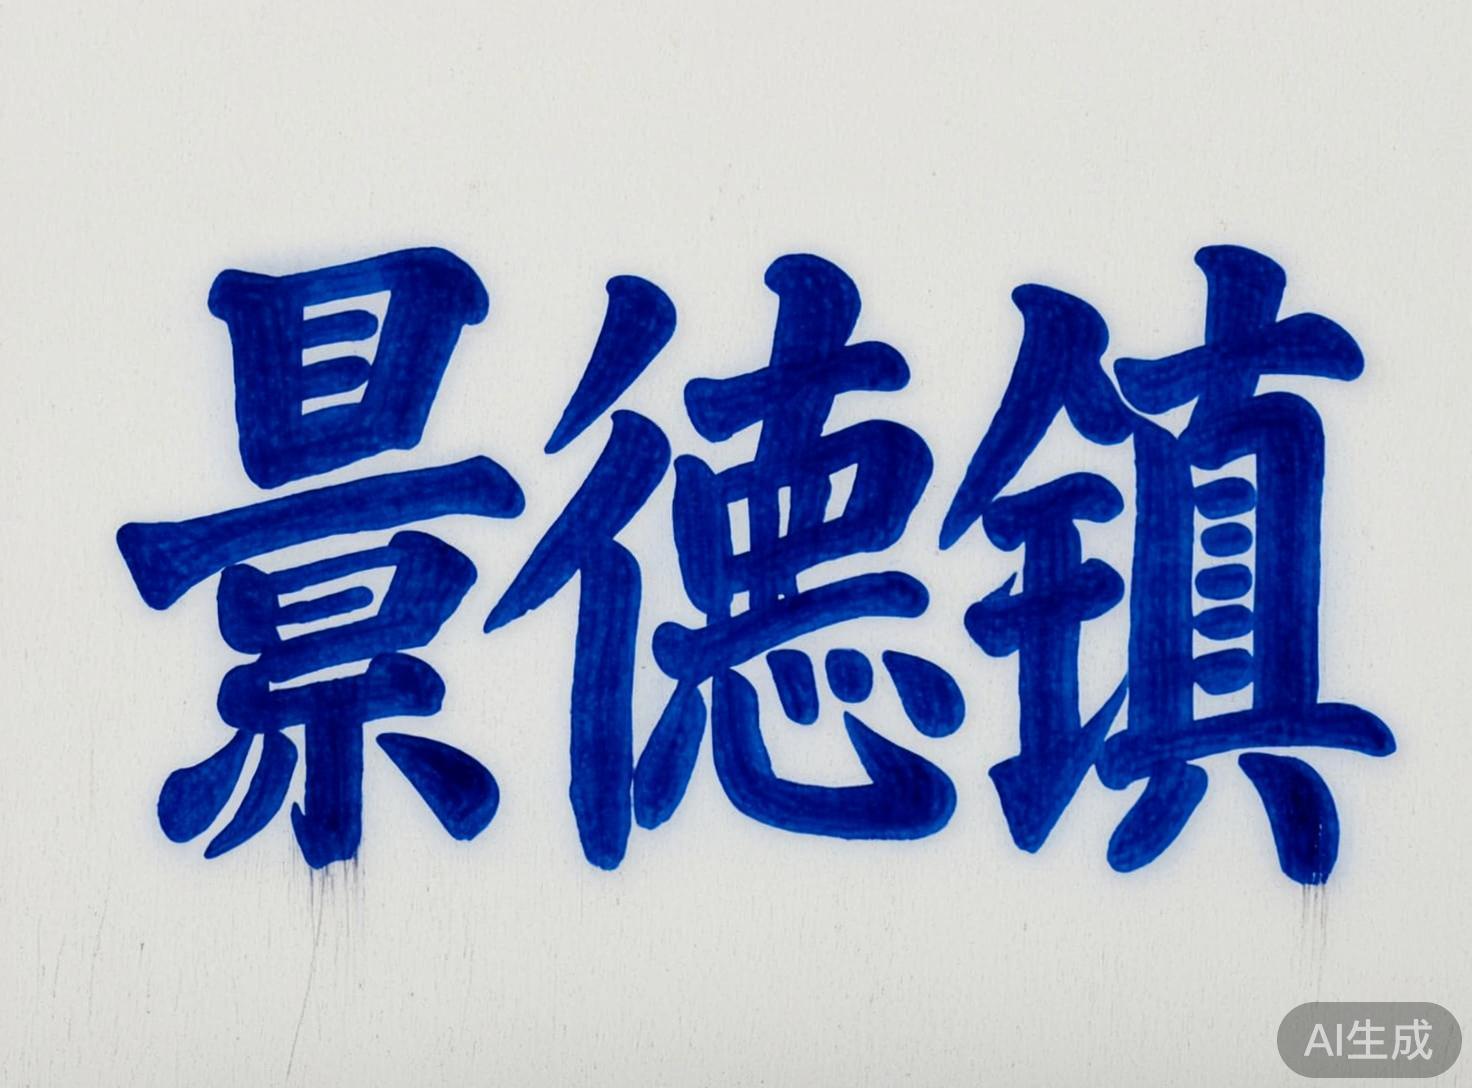 景德镇
AI生成